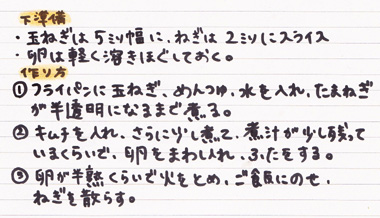 下準備
・玉ねぎは5ミリ幅に、ねぎは2ミリにスライス
・卵は軽く溶きほぐしておく。
作り方
①フライパンに玉ねぎ、めんつゆ、水を入れ、たまねぎ
が半透明になるまで煮る。
②キムチを入れ、さらに少し煮て、煮汁が少し残って
いるくらいで、卵をまわし入れ、ふたをする。
③卵が半熟くらいで火をとめ、ご飯にのせ、
ねぎを散らす。